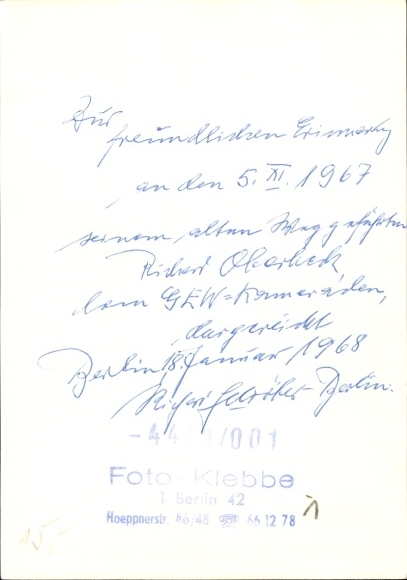 Zur
freundlichen Erinnerung
an den 5. XI. 1967
seinem alten Weggefährten
Richard Oberbeck,
dem GEW=Kameraden,
dargereicht
Berlin 18. Januar 1968
Richard Schröter - Berlin.
/001
Foto-Klebbe
1 Berlin 42
Hoeppnerstr. 46/48 66 12 78
15,-